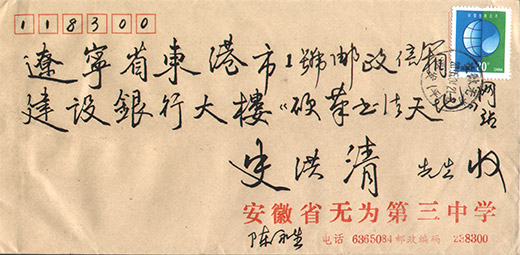 118300
遼寧省東港市1號郵政信箱
建設銀行大樓《硬筆书法天地》网站
史洪清 先生 收
安徽省无为第三中学
陈永生
电话 6365084 邮政编码 238300